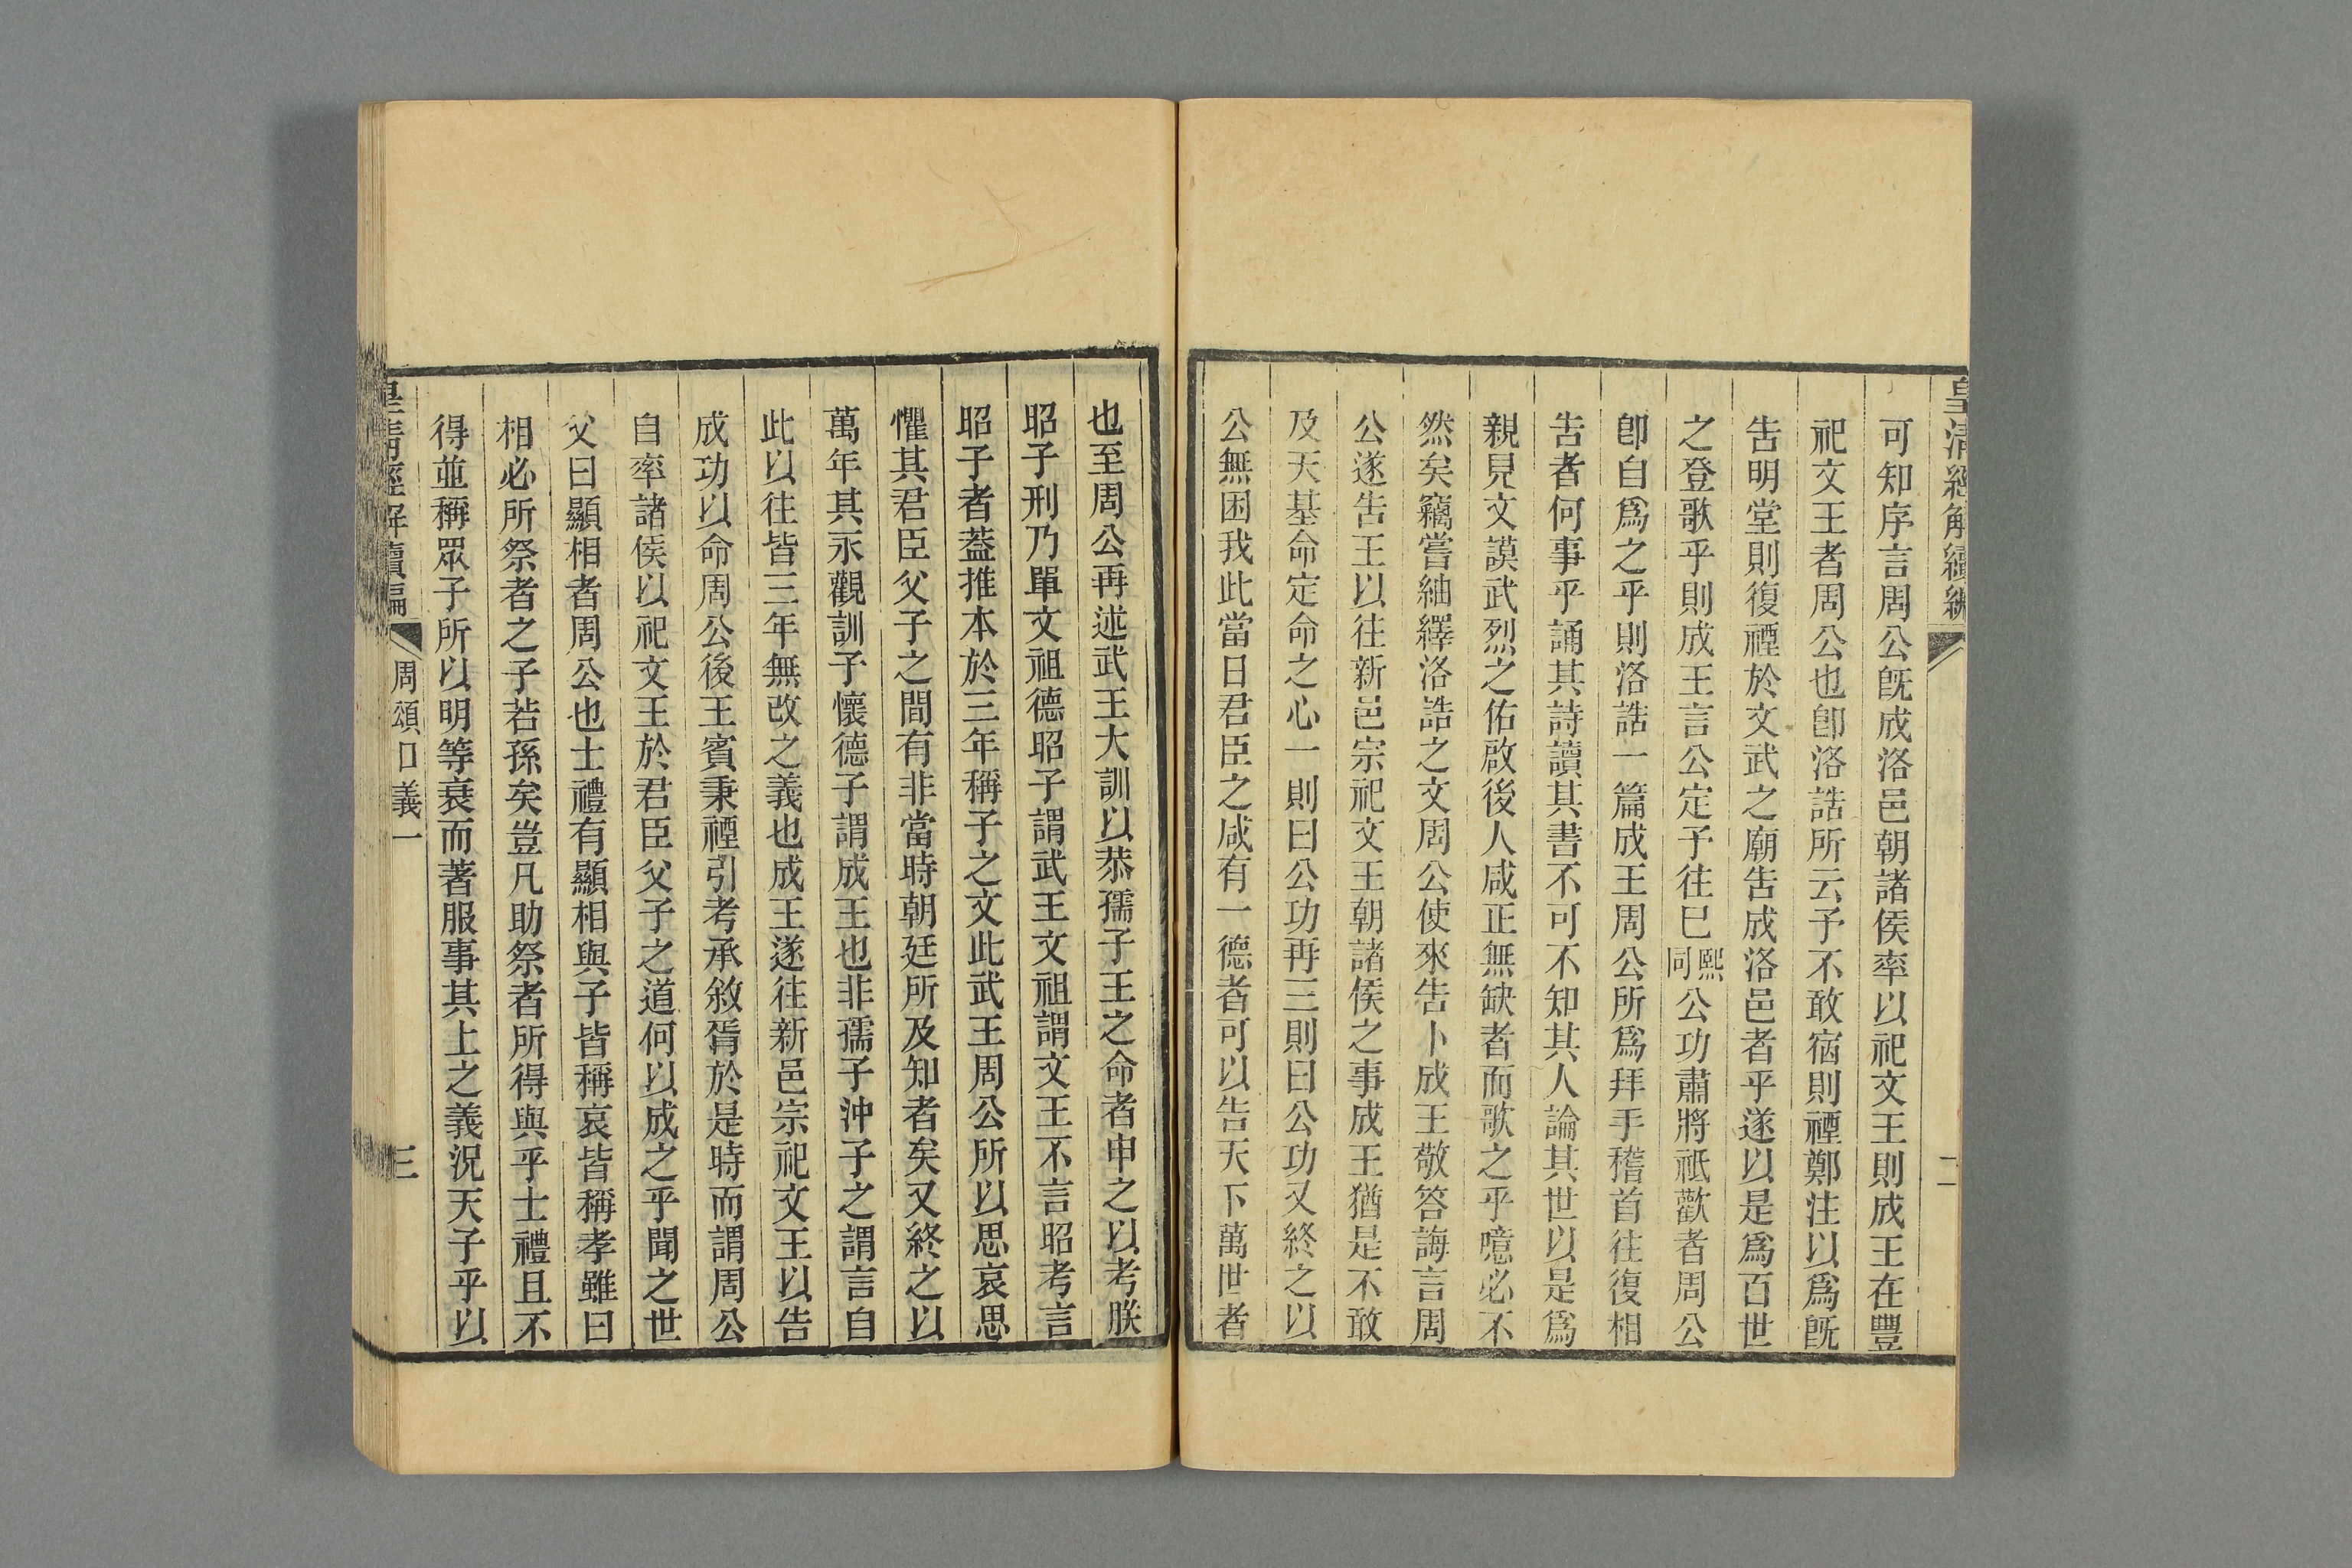 皇清經解續編
二
可知序言周公旣成洛邑朝諸侯率以祀文王則成王在豐
祀文王者周公也卽洛誥所云予不敢宿則禋鄭注以爲旣
告明堂則復禋於文武之廟告成洛邑者乎遂以是爲百世
之登歌乎則成王言公定予往已熙同公功肅將祗歡者周公
卽自爲之乎則洛誥一篇成王周公所爲拜手稽首往復相
告者何事乎誦其詩讀其書不可不知其人論其世以是爲
親見文謨武烈之佑啟後人咸正無缺者而歌之乎噫必不
然矣竊嘗紬繹洛誥之文周公使來告卜成王敬答誨言周
公遂告王以往新邑宗祀文王朝諸侯之事成王猶是不敢
及天基命定命之心一則曰公功再三則曰公功又終之以
公無困我此當日君臣之咸有一德者可以告天下萬世者
也至周公再述武王大訓以恭孺子王之命者申之以考朕
昭子刑乃單文祖德昭子謂武王文祖謂文王不言昭考言
昭子者葢推本於三年稱子之文此武王周公所以思哀思
懼其君臣父子之間有非當時朝廷所及知者矣又終之以
萬年其永觀訓子懷德子謂成王也非孺子沖子之謂言自
此以往皆三年無改之義也成王遂往新邑宗祀文王以告
成功以命周公後王賓秉禋引考承敘胥於是時而謂周公
自率諸侯以祀文王於君臣父子之道何以成之乎聞之世
父曰顯相者周公也士禮有顯相與子皆稱哀皆稱孝雖曰
相必所祭者之子若孫矣豈凡助祭者所得與乎士禮且不
得並稱眾子所以明等衰而著服事其上之義況天子乎以
皇清經解續編
周頌口義一
三